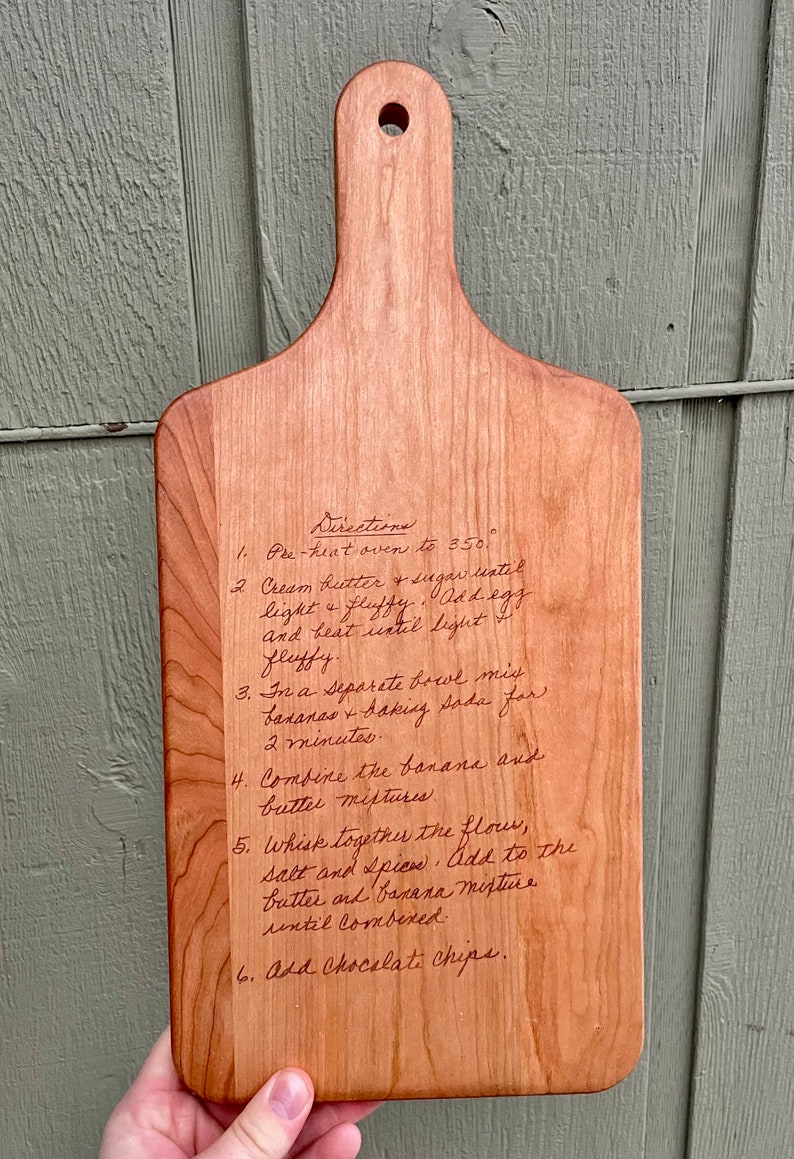 Directions
1. Pre-heat oven to 350.°
2. Cream butter & sugar until
light & fluffy. Add egg
and beat until light &
fluffy.
3. In a separate bowl mix
bananas & baking soda for
2 minutes.
4. Combine the banana and
butter mixtures.
5. Whisk together the flour,
salt and spices. Add to the
butter and banana mixture
until combined.
6. Add chocolate chips.